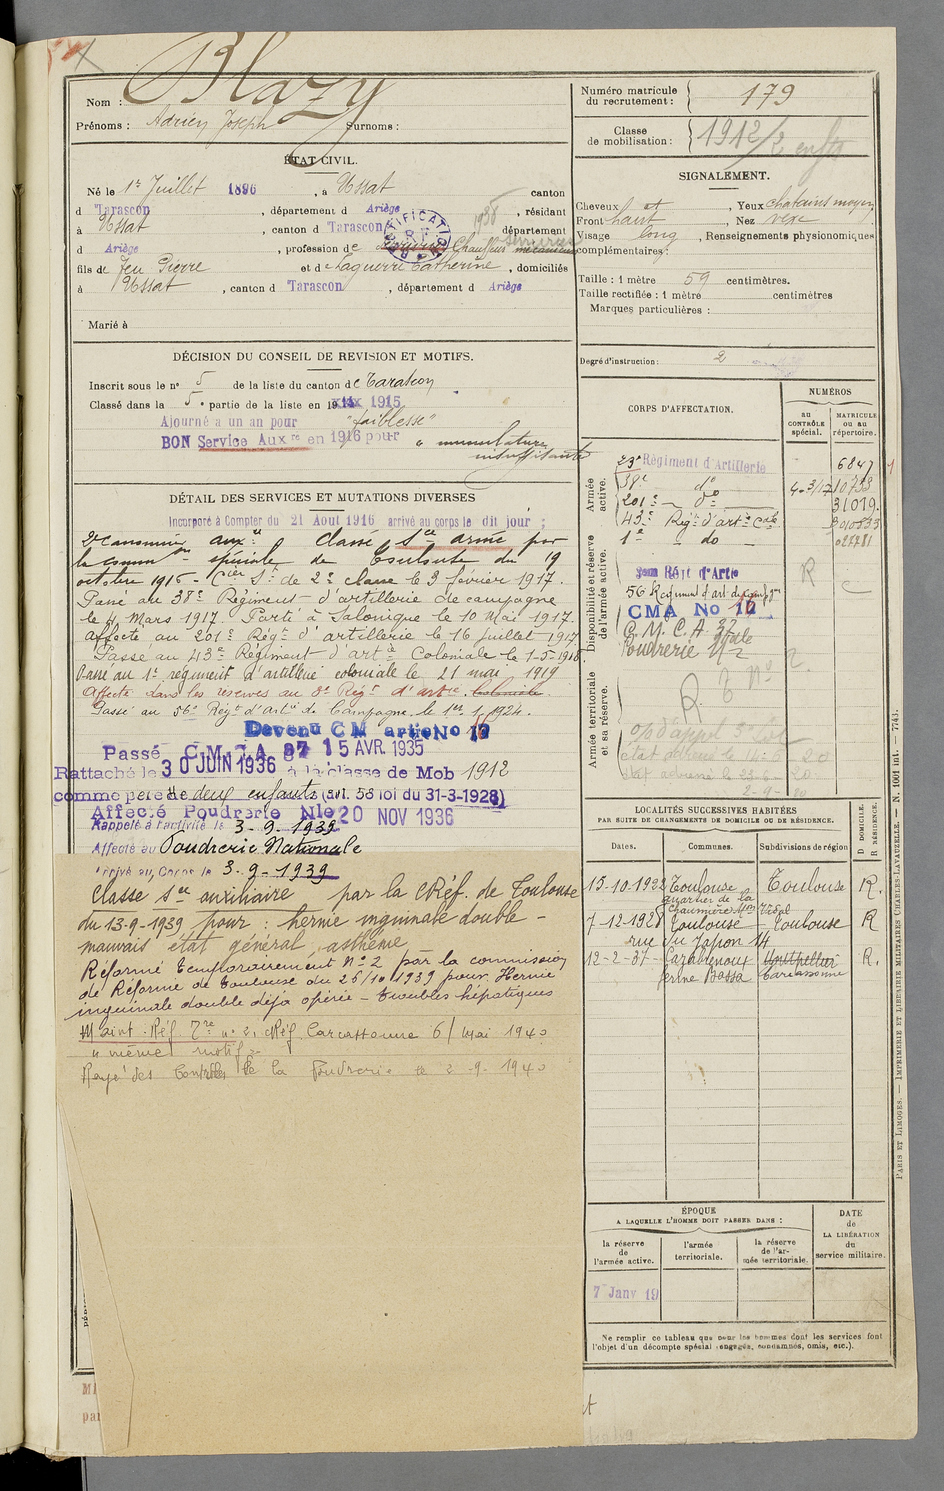 Blazy
Nom :
Prénoms : Adrien Joseph Surnoms :
Numéro matricule du recrutement : 179
Classe de mobilisation : 1912/2 enfts
ÉTAT CIVIL.
Né le 1er Juillet 1896, à Ussat canton
d Tarascon, département d Ariège, résidant
à Ussat, canton d Tarascon département
d Ariège, profession de Chauffeur mécanicien
1938 serrurier
RECTIFICATION R F
fils de Feu Pierre et d Naguerre Catherine, domiciliés
à Ussat, canton d Tarascon, département d Ariège
Marié à
SIGNALEMENT.
Cheveux et, Yeux chatains moyen
Front haut, Nez vexe
Visage long, Renseignements physionomiques
complémentaires :
Taille : 1 mètre 59 centimètres.
Taille rectifiée : 1 mètre centimètres
Marques particulières :
Degré d'instruction : 2
DÉCISION DU CONSEIL DE REVISION ET MOTIFS.
Inscrit sous le n° 5 de la liste du canton de Tarascon
Classé dans la 5e partie de la liste en 1915
Ajourné à un an pour "faiblesse"
BON Service Auxre en 1916 pour "musculature
insuffisante
DÉTAIL DES SERVICES ET MUTATIONS DIVERSES
Incorporé à Compter du 21 Aout 1916 arrivé au corps le dit jour ;
2e canonnier auxre Classé Sce armé par
la Common spéciale de Toulouse du 19
octobre 1916 - Cier St de 2e classe le 3 février 1917.
Passé au 38e Régiment d'artillerie de campagne
le 4 Mars 1917. Parti à Salonique le 10 Mai 1917.
Affecté au 201e Régt d'artillerie le 16 juillet 1917
Passé au 43e Régiment d'artie Coloniale le 1-5-1918
Passé au 1er régiment d'artillerie coloniale le 21 mai 1919
Affecté dans les réserves au 3e Régt d'artie Coloniale
Passé au 56e Régt d'artie de Campagne le 1er 1 1924.
Devenu C M artie No 17
Passé C.M.C.A 37 15 AVR. 1935
Rattaché le 30 JUIN 1936 à la classe de Mob 1912
comme père de deux enfants (art. 58 loi du 31-3-1928)
Affecté Poudrerie Nle 20 NOV 1936
Rappelé à l'activité le 3-9-1939
Affecté au Poudrerie Nationale
Arrivé au Corps le 3-9-1939
Classé Sce auxiliaire par la C. Réf. de Toulouse
du 13-9-1939 pour : hernie inguinale double -
mauvais état général, asthénie
Réformé Temporairement N° 2 par la commission
de Réforme de Toulouse du 26/10 1939 pour Hernie
inguinale double déjà opérée - Troubles hépatiques
Maint. Réf. Tre n° 2, C Réf. Carcassonne 6 Mai 1940
"même motif"
Rayé des Contrôles de la Poudrerie le 2-9-1940
CORPS D'AFFECTATION.
NUMÉROS
au CONTRÔLE spécial.
MATRICULE ou au répertoire.
Armée active.
23e Régiment d'Artillerie 6847
38e do 4-3/17 10733
201e do 31019
43e Régt d'artie Cale
1e do
Disponibilité et réserve de l'armée active.
Régt d'Artie
56 Régiment d'art de campgne
CMA No 12 16
C.M.C.A 37
Poudrerie Nale
R
C
Armée territoriale et sa réserve.
LOCALITÉS SUCCESSIVES HABITÉES
PAR SUITE DE CHANGEMENTS DE DOMICILE OU DE RÉSIDENCE.
Dates. Communes. Subdivisions de région D DOMICILE. R RÉSIDENCE.
15-10-1922 Toulouse Toulouse R.
quartier de la
Chaumière
7-12-1928 Toulouse Toulouse R
rue du Japon 14
12-2-37 Montpellier R.
Carcassonne
ÉPOQUE
A LAQUELLE L'HOMME DOIT PASSER DANS :
la réserve de l'armée active.
l'armée territoriale.
la réserve de l'armée territoriale.
DATE de LA LIBÉRATION du service militaire.
7 Janv 19
Ne remplir ce tableau que pour les hommes dont les services font
l'objet d'un décompte spécial (engagés, condamnés, omis, etc.).
PARIS ET LIMOGES. — IMPRIMERIE ET LIBRAIRIE MILITAIRES CHARLES-LAVAUZELLE. — N. 1001 int. — 7743.